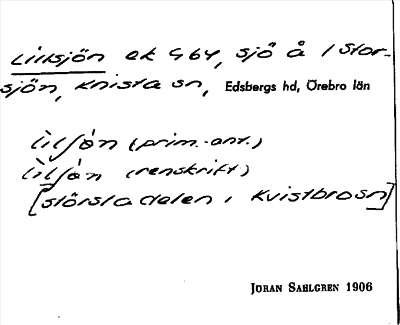 Lillsjön ek 464, sjö å i Stor-
sjön, Knista sn, Edsbergs hd, Örebro län
(prim.-ant.)
(renskrift)
[största delen i Kvistbro sn]
JÖRAN SAHLGREN 1906